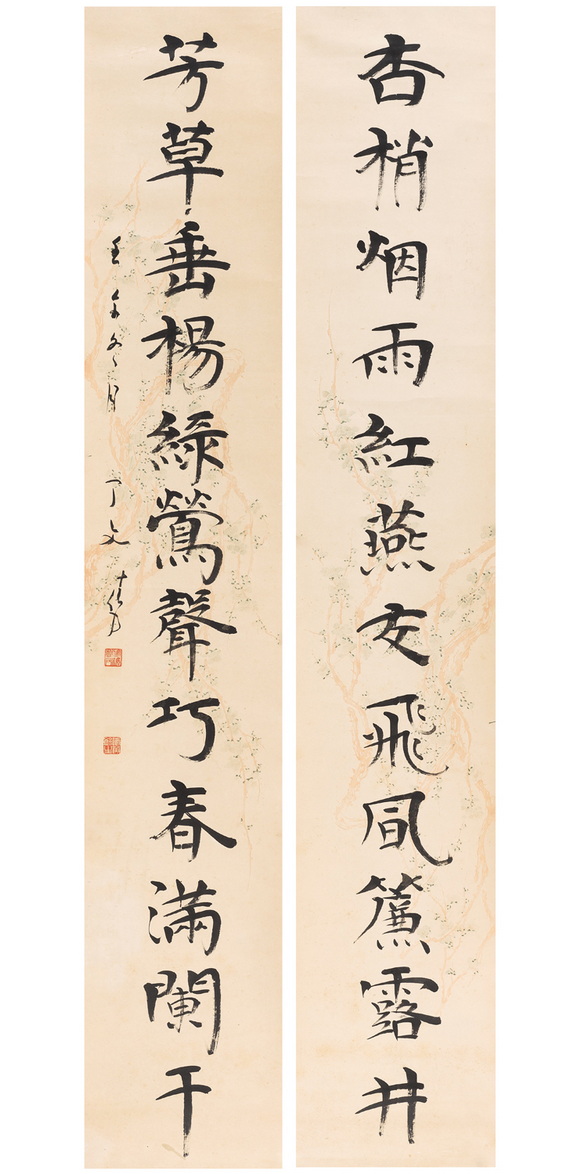 杏梢烟雨紅燕交飛風簾露井
芳草垂楊綠鶯聲巧春滿闌干
壬午冬月 丁文